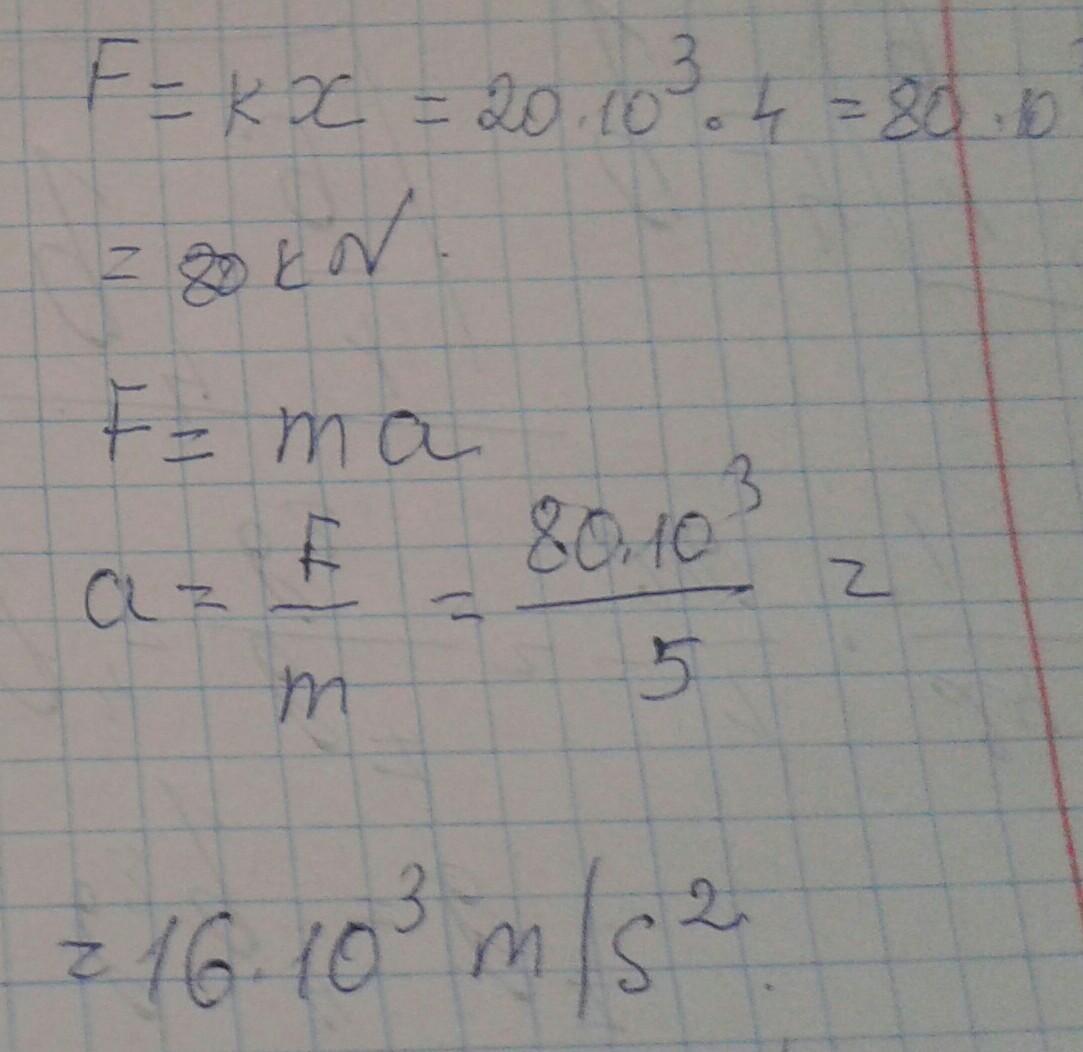 F = kx = 20·10³·4 = 80·10
= 80 kN.
F = ma
a = F/m = 80·10³/5 =
= 16·10³ m/s².